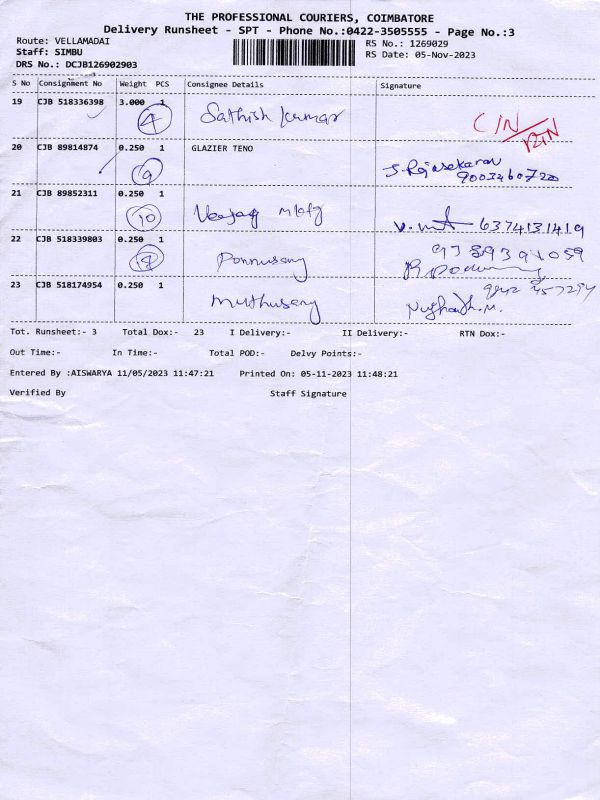 THE PROFESSIONAL COURIERS, COIMBATORE
Delivery Runsheet - SPT - Phone No.:0422-3505555 - Page No.:3
Route: VELLAMADAI
RS No.: 1269029
Staff: SIMBU
RS Date: 05-Nov-2023
DRS No.: DCJB126902903
S No Consignment No Weight PCS Consignee Details Signature
19 CJB 518336398 3.000 1 Sathish kumar
4 C/N/RTN
20 CJB 89814874 0.250 1 GLAZIER TENO
9 J. Rajasekaran
21 CJB 89852311 0.250 1
10 6374131419
22 CJB 518339803 0.250 1
Ponnusamy
23 CJB 518174954 0.250 1
Muthusamy
Tot. Runsheet:- 3 Total Dox:- 23 I Delivery:- II Delivery:- RTN Dox:-
Out Time:- In Time:- Total POD:- Delvy Points:-
Entered By :AISWARYA 11/05/2023 11:47:21 Printed On: 05-11-2023 11:48:21
Verified By Staff Signature